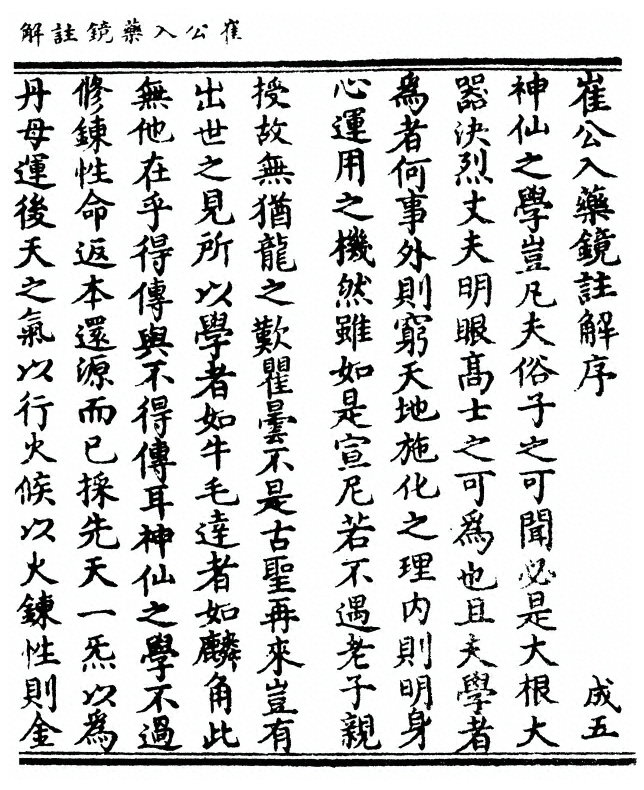 崔公入藥鏡註解
崔公入藥鏡註解序
成五
神仙之學豈凡夫俗子之可聞必是大根大
器決烈丈夫明眼高士之可爲也且夫學者
爲者何事外則窮天地施化之理内則明身
心運用之機然雖如是宣尼若不遇老子親
授故無猶龍之歎瞿曇不是古聖再來豈有
出世之見所以學者如牛毛達者如麟角此
無他在乎得傳與不得傳耳神仙之學不過
修鍊性命返本還源而已採先天一炁以爲
丹母運後天之氣以行火候以火鍊性則金